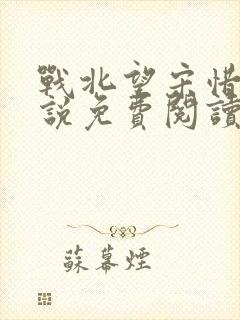 戰北望宋惜
說免費閱讀
蘇幕煙